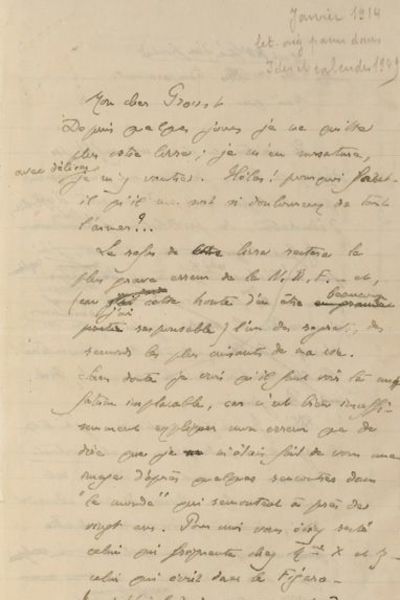 Janvier 1914
let. orig parue dans
Ides et calendes 1949
Mon cher Proust
Depuis quelques jours je ne quitte
plus votre livre ; je m'en sursature,
avec délices
je m'y vautre. Hélas ! pourquoi faut-
il qu'il me soit si douloureux de tant
l'aimer ?..
Le refus de ce livre restera la
plus grave erreur de la N. R. F. - et,
(car j'ai cette honte d'en être beaucoup
responsable) l'un des regrets, des
remords les plus cuisants de ma vie.
Sans doute je crois qu'il faut voir là un
fatum implacable, car c'est bien insuffi-
samment expliquer mon erreur que de
dire que je m'étais fait de vous une
image d'après quelques rencontres dans
"le monde" qui remontent à près de
vingt ans. Pour moi vous étiez resté
celui qui fréquente chez Mme X et Z -
celui qui écrit dans le Figaro -